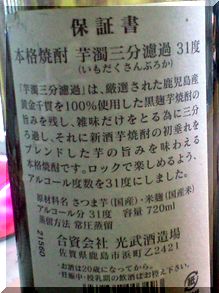 保証書
本格焼酎 芋濁三分濾過 31度
(いもだくさんぶろか)
「芋濁三分濾過」は、厳選された鹿児島産
黄金千貫を100%使用した黒麹芋焼酎の
旨みを残し、雑味だけをとる為に三分
ろ過し、それに新酒芋焼酎の初垂れを
ブレンドした芋の旨みを味わえる
本格焼酎です。ロックで楽しめるよう、
アルコール度数を31度にしました。
原材料名 さつま芋(国産)・米麹(国産米)
アルコール分 31度 容量 720ml
蒸留方法 常圧蒸留
合資会社 光武酒造場
佐賀県鹿島市浜町乙2421
・お酒は20歳になってから。
・妊娠中・授乳期の飲酒はお控え下さい。
21560